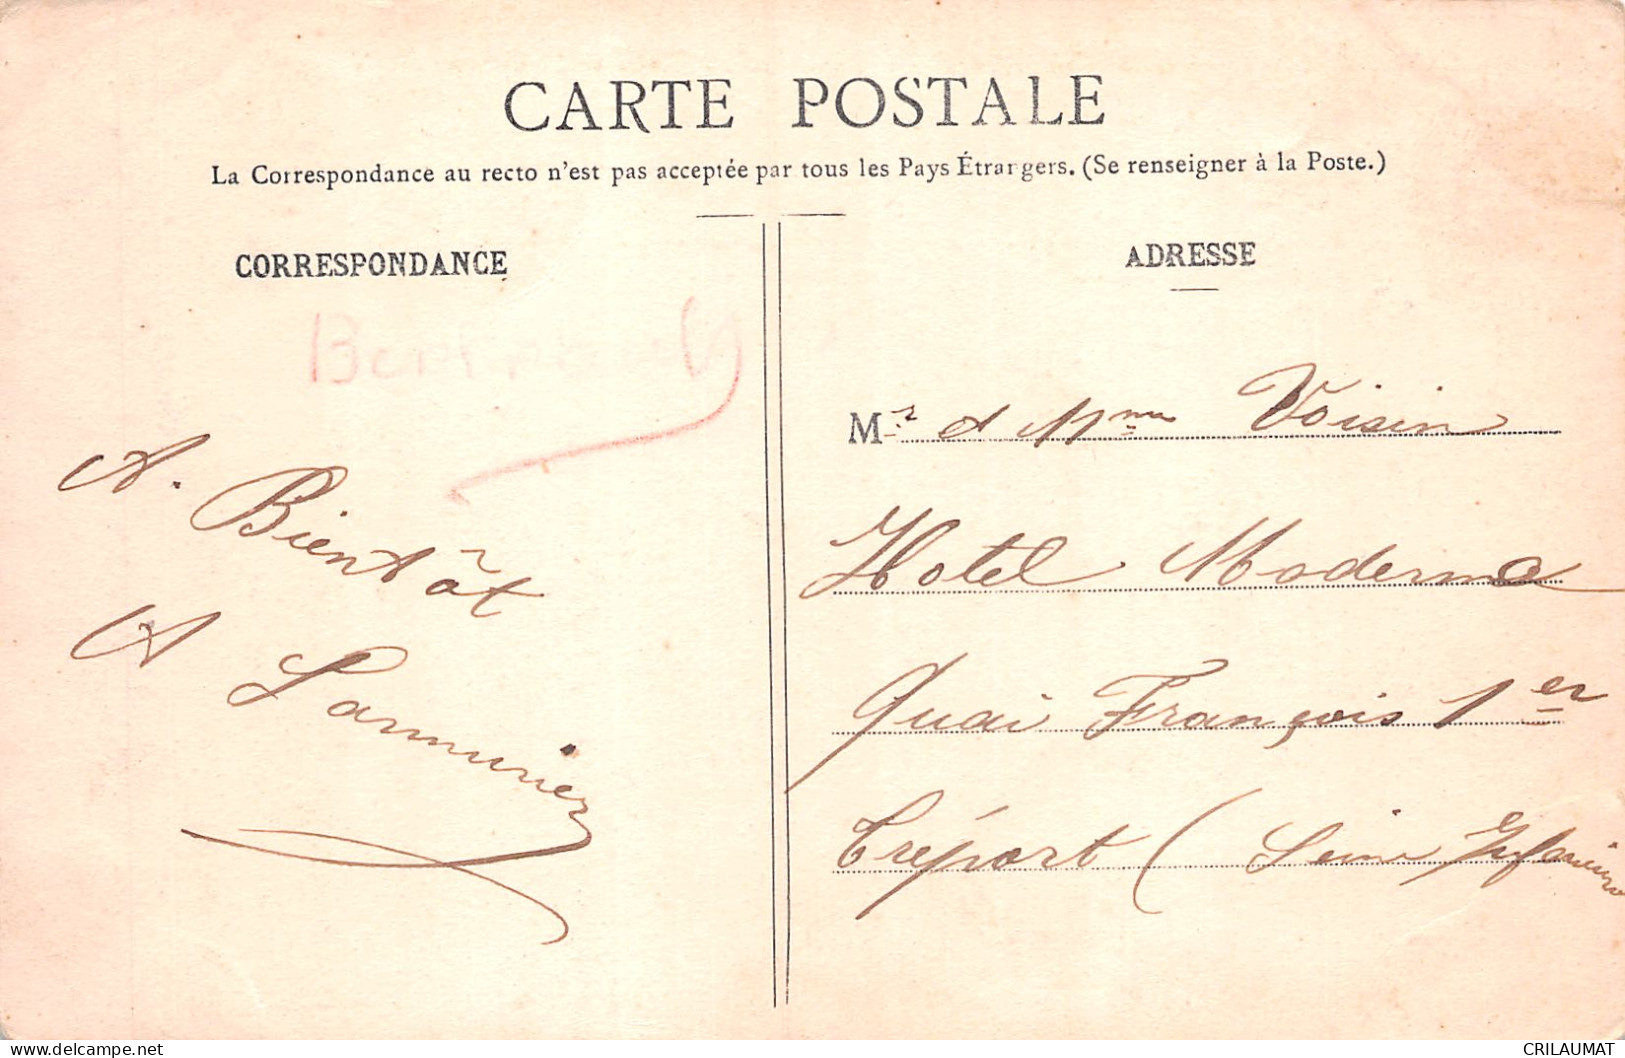 CARTE POSTALE
La Correspondance au recto n'est pas acceptée par tous les Pays Étrangers. (Se renseigner à la Poste.)
CORRESPONDANCE
A. Bientôt
A
ADRESSE
Mr et Mme Voisin
Hotel Moderne
Quai François 1er
Tréport (Seine Inférieure
CRILAUMAT